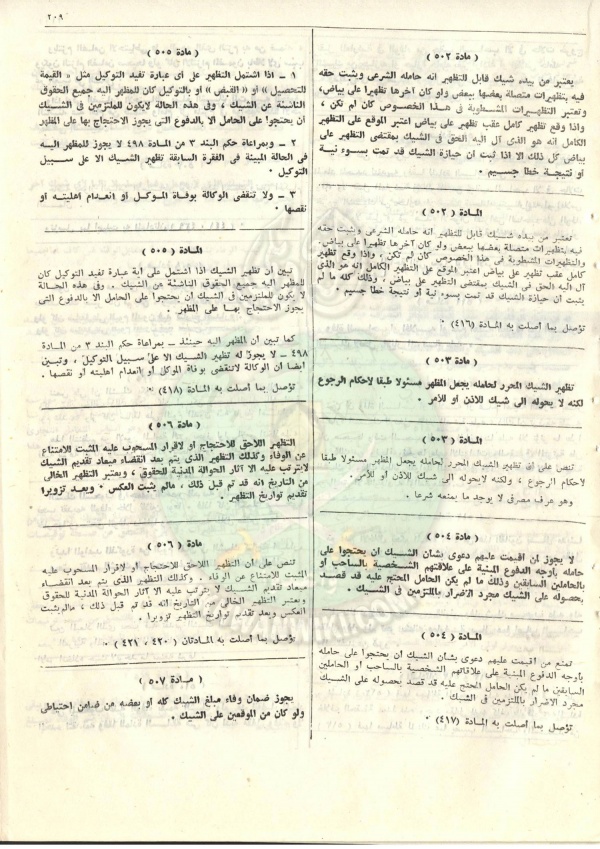 ٢٠٩
( مادة ٥٠٢ )
يعتبر من بيده شيك قابل للتظهير انه حامله الشرعى ويثبت حقه
فيه بتظهيرات متصلة بعضها ببعض ولو كان آخرها تظهيرا على بياض،
وتعتبر التظهيرات المشطوبة فى هذا الخصوص كان لم تكن ،
واذا وقع تظهير كامل عقب تظهير على بياض اعتبر الموقع على التظهير
الكامل انه هو الذى آل اليه الحق فى الشيك بمقتضى التظهير على
بياض كل ذلك الا اذا ثبت ان حيازة الشيك قد تمت بسوء نية
أو نتيجة خطا جسيم .
المادة ( ٥٠٢ )
تعتبر من بيده شيك قابل للتظهير انه حامله الشرعى ويثبت حقه
فيه بتظهيرات متصلة بعضها ببعض ولو كان آخرها تظهيرا على بياض.
والتظهيرات المشطوبة فى هذا الخصوص كان لم تكن ، واذا وقع تظهير
كامل عقب تظهير على بياض اعتبر الموقع على التظهير الكامل انه هو الذى
آل اليه الحق فى الشيك بمقتضى التظهير على بياض ، وذلك كله ما لم
يثبت أن حيازة الشيك قد تمت بسوء نية أو نتيجة خطأ جسيم .
تؤصل بما أصلت به المادة (٤١٦) .
( مادة ٥٠٣ )
تظهير الشيك المحرر لحامله يجعل المظهر مسئولا طبقا لاحكام الرجوع
لكنه لا يحوله الى شيك للأذن أو للأمر .
المادة ( ٥٠٣ )
تنص على ان تظهير الشيك المحرر لحامله يجعل المظهر مسئولا طبقا
لاحكام الرجوع ، ولكنه لايحوله الى شيك للأذن أو للأمر .
وهو عرف مصرفى لا يوجد ما يمنعه شرعا .
( مادة ٥٠٤ )
لا يجوز لمن اقيمت عليهم دعوى بشأن الشيك ان يحتجوا على
حامله بأوجه الدفوع المبنية على علاقتهم الشخصية بالساحب أو
بالحاملين السابقين وذلك ما لم يكن الحامل المحتج عليه قد قصد
بحصوله على الشيك مجرد الاضرار بالملتزمين فى الشيك .
المادة ( ٥٠٤ )
تمنع من أقيمت عليهم دعوى بشأن الشيك ان يحتجوا على حامله
بأوجه الدفوع المبنية على علاقاتهم الشخصية بالساحب أو الحاملين
السابقين ما لم يكن الحامل المحتج عليه قد قصد بحصوله على الشيك
مجرد الاضرار بالملتزمين فى الشيك .
تؤصل بما أصلت به المادة (٤١٧) .
( مادة ٥٠٥ )
١ ــ اذا اشتمل التظهير على أى عبارة تفيد التوكيل مثل « القيمة
للتحصيل » أو « القبض » أو بالتوكيل كان للمظهر اليه جميع الحقوق
الناشئة عن الشيك ، وفى هذه الحالة لايكون للملتزمين فى الشيك
ان يحتجوا على الحامل الا بالدفوع التى يجوز الاحتجاج بها على المظهر
٢ ــ وبمراعاة حكم البند ٣ من المادة ٤٩٨ لا يجوز للمظهر اليه
فى الحالة المبينة فى الفقرة السابقة تظهير الشيك الا على سبيل
التوكيل .
٣ ــ ولا تنقضى الوكالة بوفاة الموكل أو انعدام اهليته أو
نقصها .
المادة ( ٥٠٥ )
تبين أن تظهير الشيك اذا اشتمل على أية عبارة تفيد التوكيل كان
للمظهر اليه جميع الحقوق الناشئة عن الشيك . وفى هذه الحالة
لا يكون للملتزمين فى الشيك ان يحتجوا على الحامل الا بالدفوع التى
يجوز الاحتجاج بها على المظهر .
كما تبين أن المظهر اليه حينئذ ــ بمراعاة حكم البند ٣ من المادة
٤٩٨ ــ لا يجوز له تظهير الشيك الا على سبيل التوكيل ، وتبين
أيضا ان الوكالة لاتنقضى بوفاة الموكل أو انعدام اهليته أو نقصها .
تؤصل بما أصلت به المادة (٤١٨) .
مادة ( ٥٠٦ )
التظهير اللاحق للاحتجاج أو لاقرار المسحوب عليه المثبت للامتناع
عن الوفاء وكذلك التظهير الذى يتم بعد انقضاء ميعاد تقديم الشيك
لايترتب عليه الا آثار الحوالة المدنية للحقوق ، ويعتبر التظهير الخالى
من التاريخ انه قد تم قبل ذلك ، مالم يثبت العكس . ويعد تزويرا
تقديم تواريخ التظهير .
مادة ( ٥٠٦ )
تنص على أن التظهير اللاحق للاحتجاج أو لاقرار المسحوب عليه
المثبت للامتناع عن الوفاء . وكذلك التظهير الذى يتم بعد انقضاء
ميعاد تقديم الشيك لا يترتب عليه الا آثار الحوالة المدنية للحقوق
ويعتبر التظهير الخالى من التاريخ انه قد تم قبل ذلك ، مالم يثبت
العكس ويعد تقديم تواريخ التظهير تزويرا .
تؤصل بما أصلت به المادتان (٤٢٠ ، ٤٢١) .
( مادة ٥٠٧ )
يجوز ضمان وفاء مبلغ الشيك كله أو بعضه من ضامن احتياطى
ولو كان من الموقعين على الشيك .